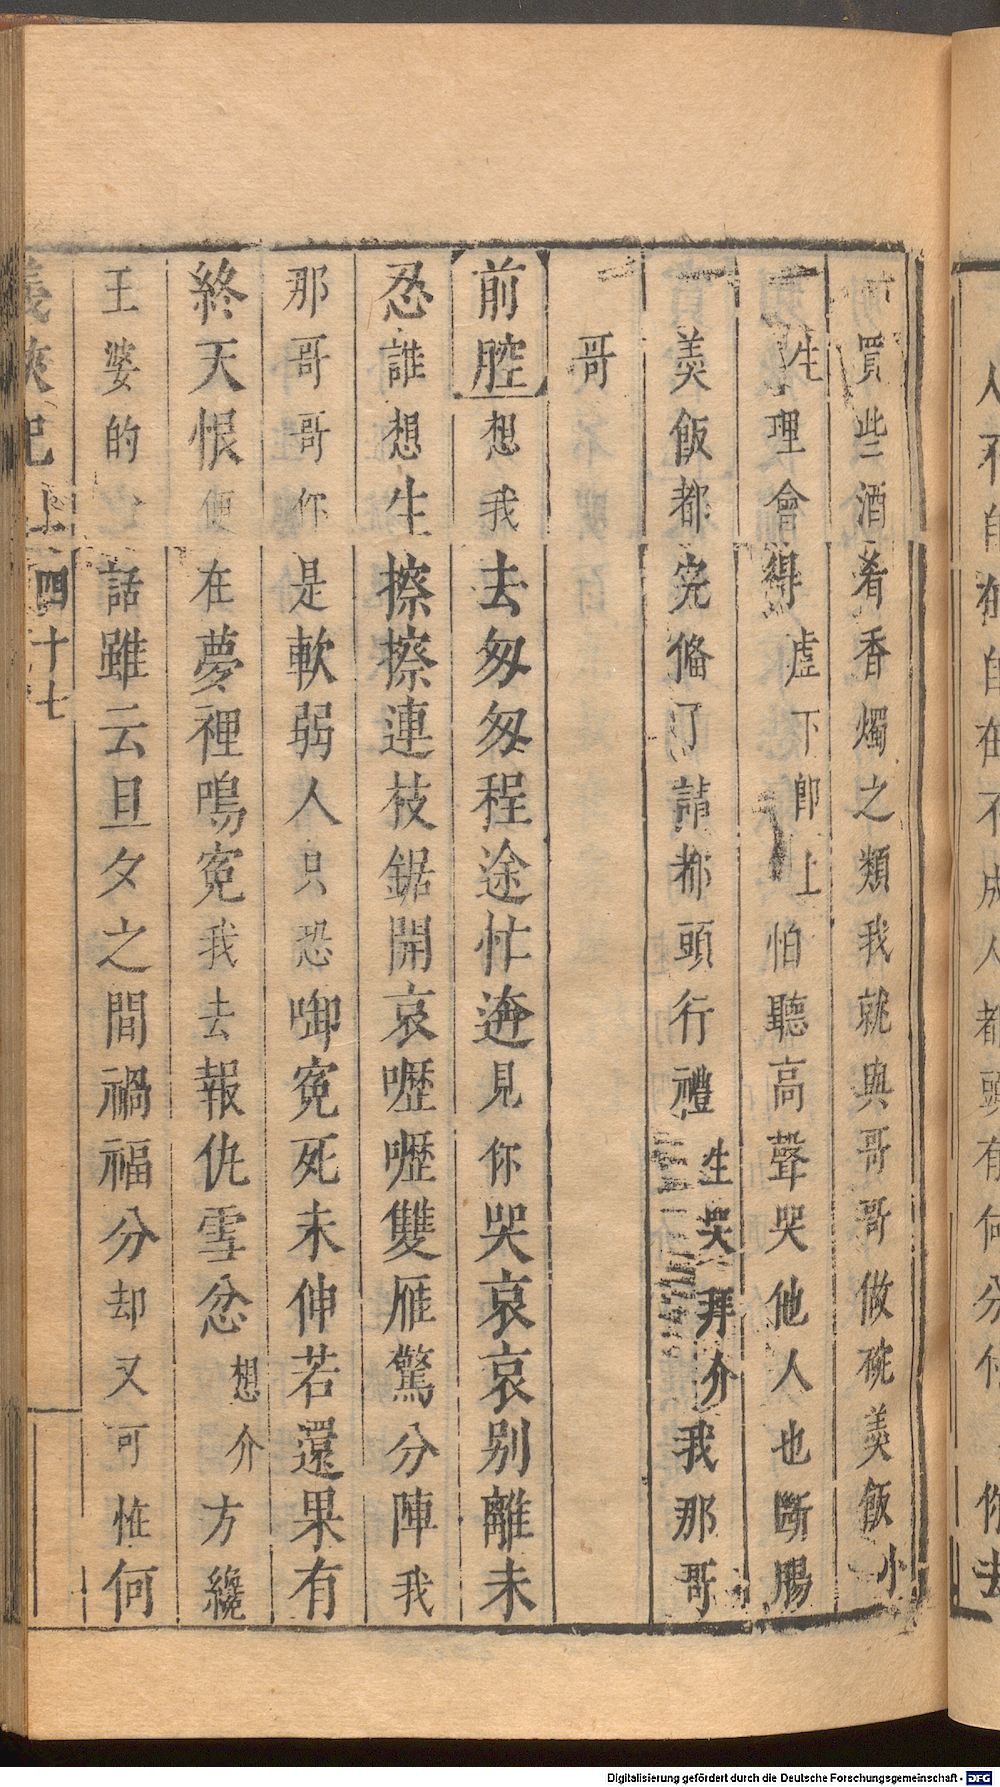 買些酒肴香燭之類我就與哥哥做碗羹飯小
生理會得虛下即上怕聽高聲哭他人也斷腸
羹飯都完俻了請都頭行禮生哭拜介我那哥
哥
前腔想我去匆匆程途忙迸見你哭哀哀别離未
忍誰想生擦擦連枝鋸開哀嚦嚦雙雁驚分陣我
那哥哥你是軟弱人只恐啣寃死未伸若還果有
終天恨便在夢裡鳴寃我去報仇雪忿想介方纔
王婆的話雖云旦夕之間禍福分却又可恠何
義俠記 上 四十七
人不自在自在不成人都頭有何分付 你去
Digitalisierung gefördert durch die Deutsche Forschungsgemeinschaft - DFG